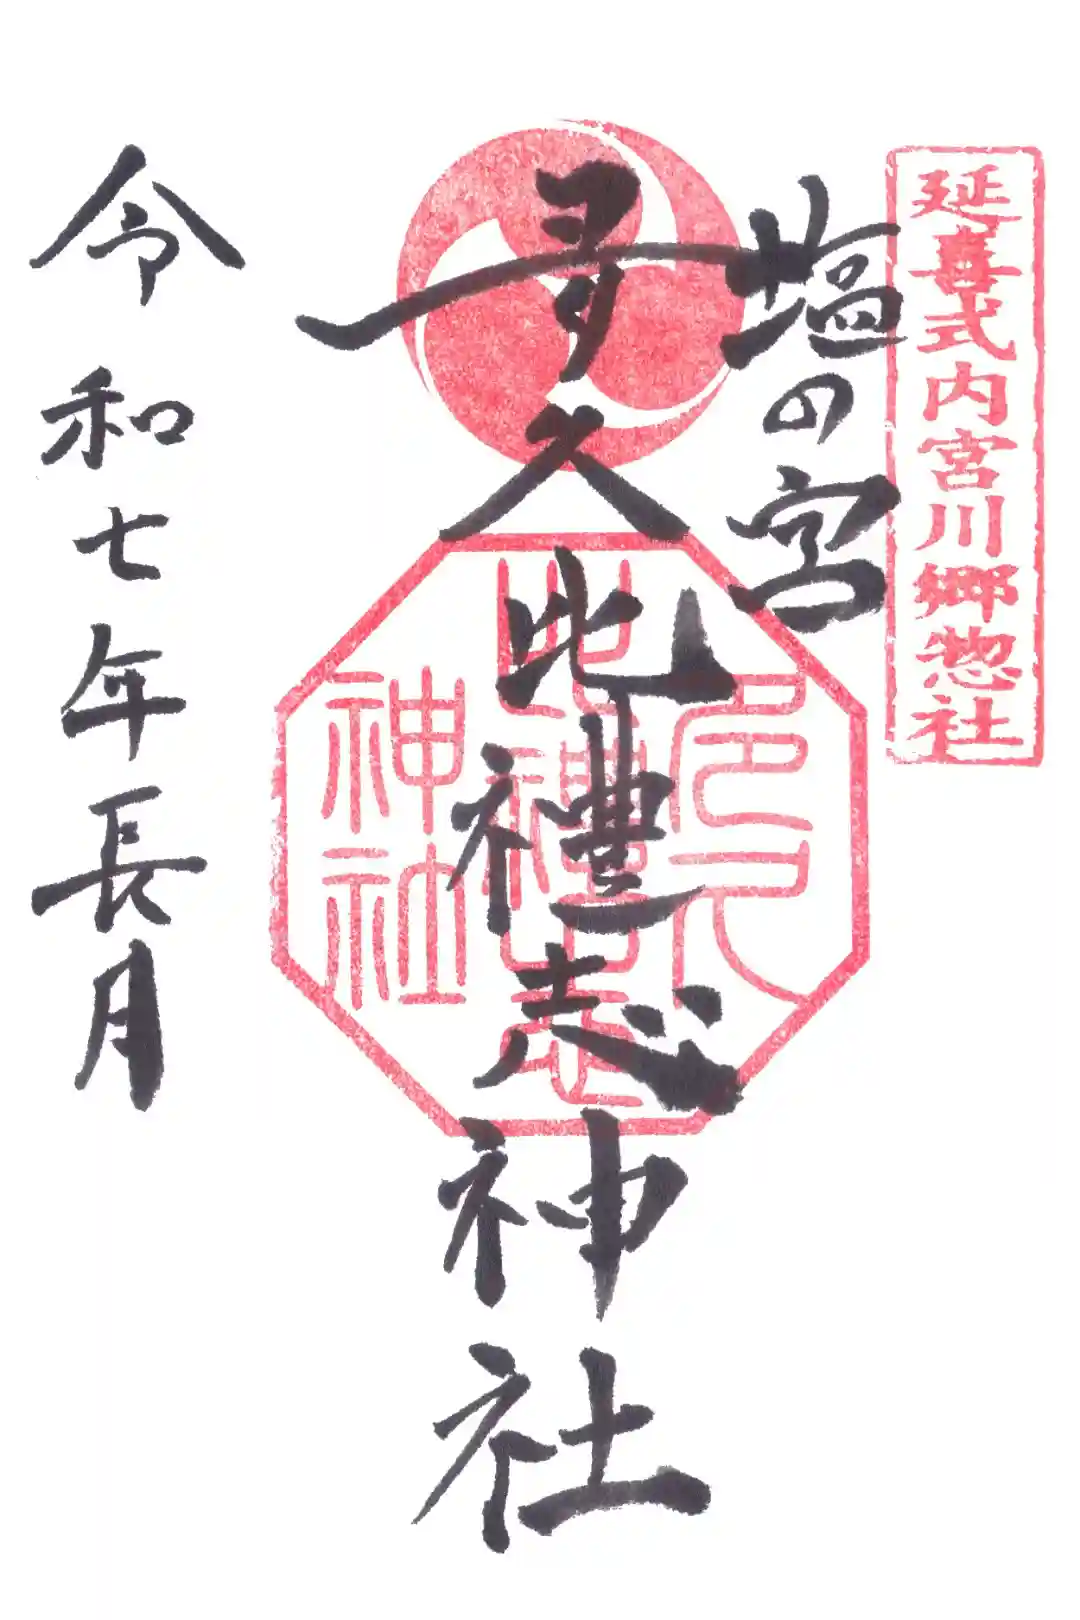 延喜式内宮川郷惣社
塩の宮
夛久比禮志神社
多久
比禮志
神社
令和七年長月